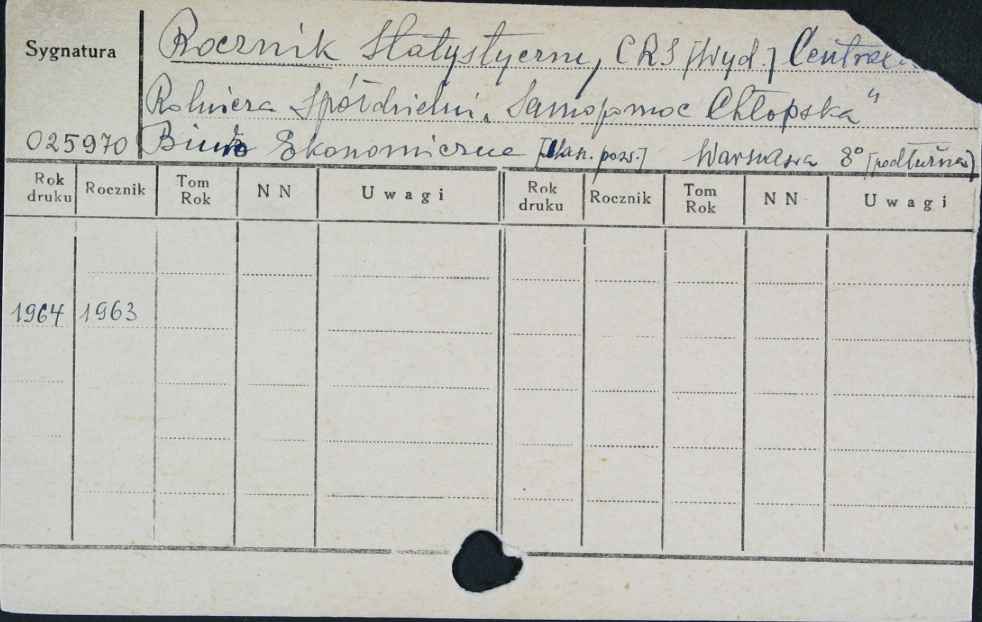 Sygnatura
Rocznik Statystyczny, CRS [Wyd.]
Rolnicza Spółdzielni „Samopomoc Chłopska"
025970 Biuro Ekonomiczne Warszawa 8°
Rok druku Rocznik Tom Rok NN Uwagi Rok druku Rocznik Tom Rok NN Uwagi
1964 1963